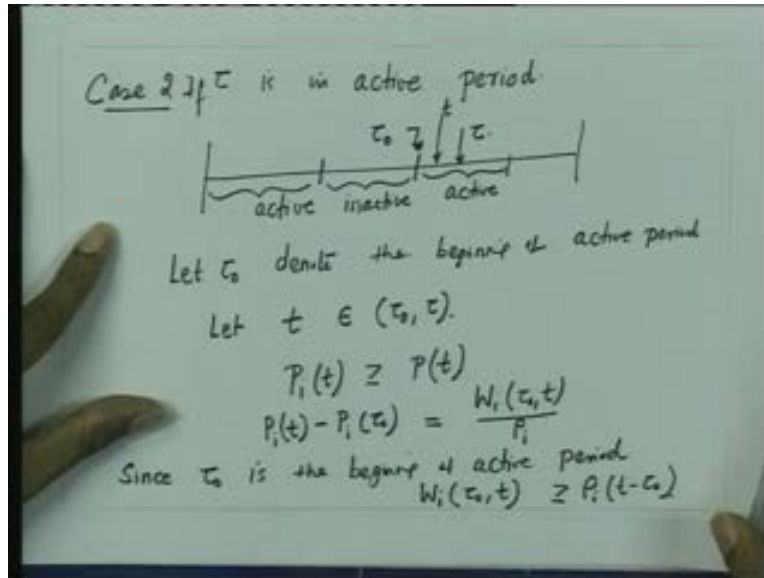 Case 2 If τ is in active period.
t
τ₀ τ.
active inactive active
Let τ₀ denote the beginnig of active period
Let t ∈ (τ₀, τ).
Pᵢ(t) ≥ P(t)
Pᵢ(t) - Pᵢ(τ₀) = Wᵢ(τ₀,t) / ρᵢ
Since τ₀ is the beginig of active period
Wᵢ(τ₀,t) ≥ ρᵢ(t-τ₀)